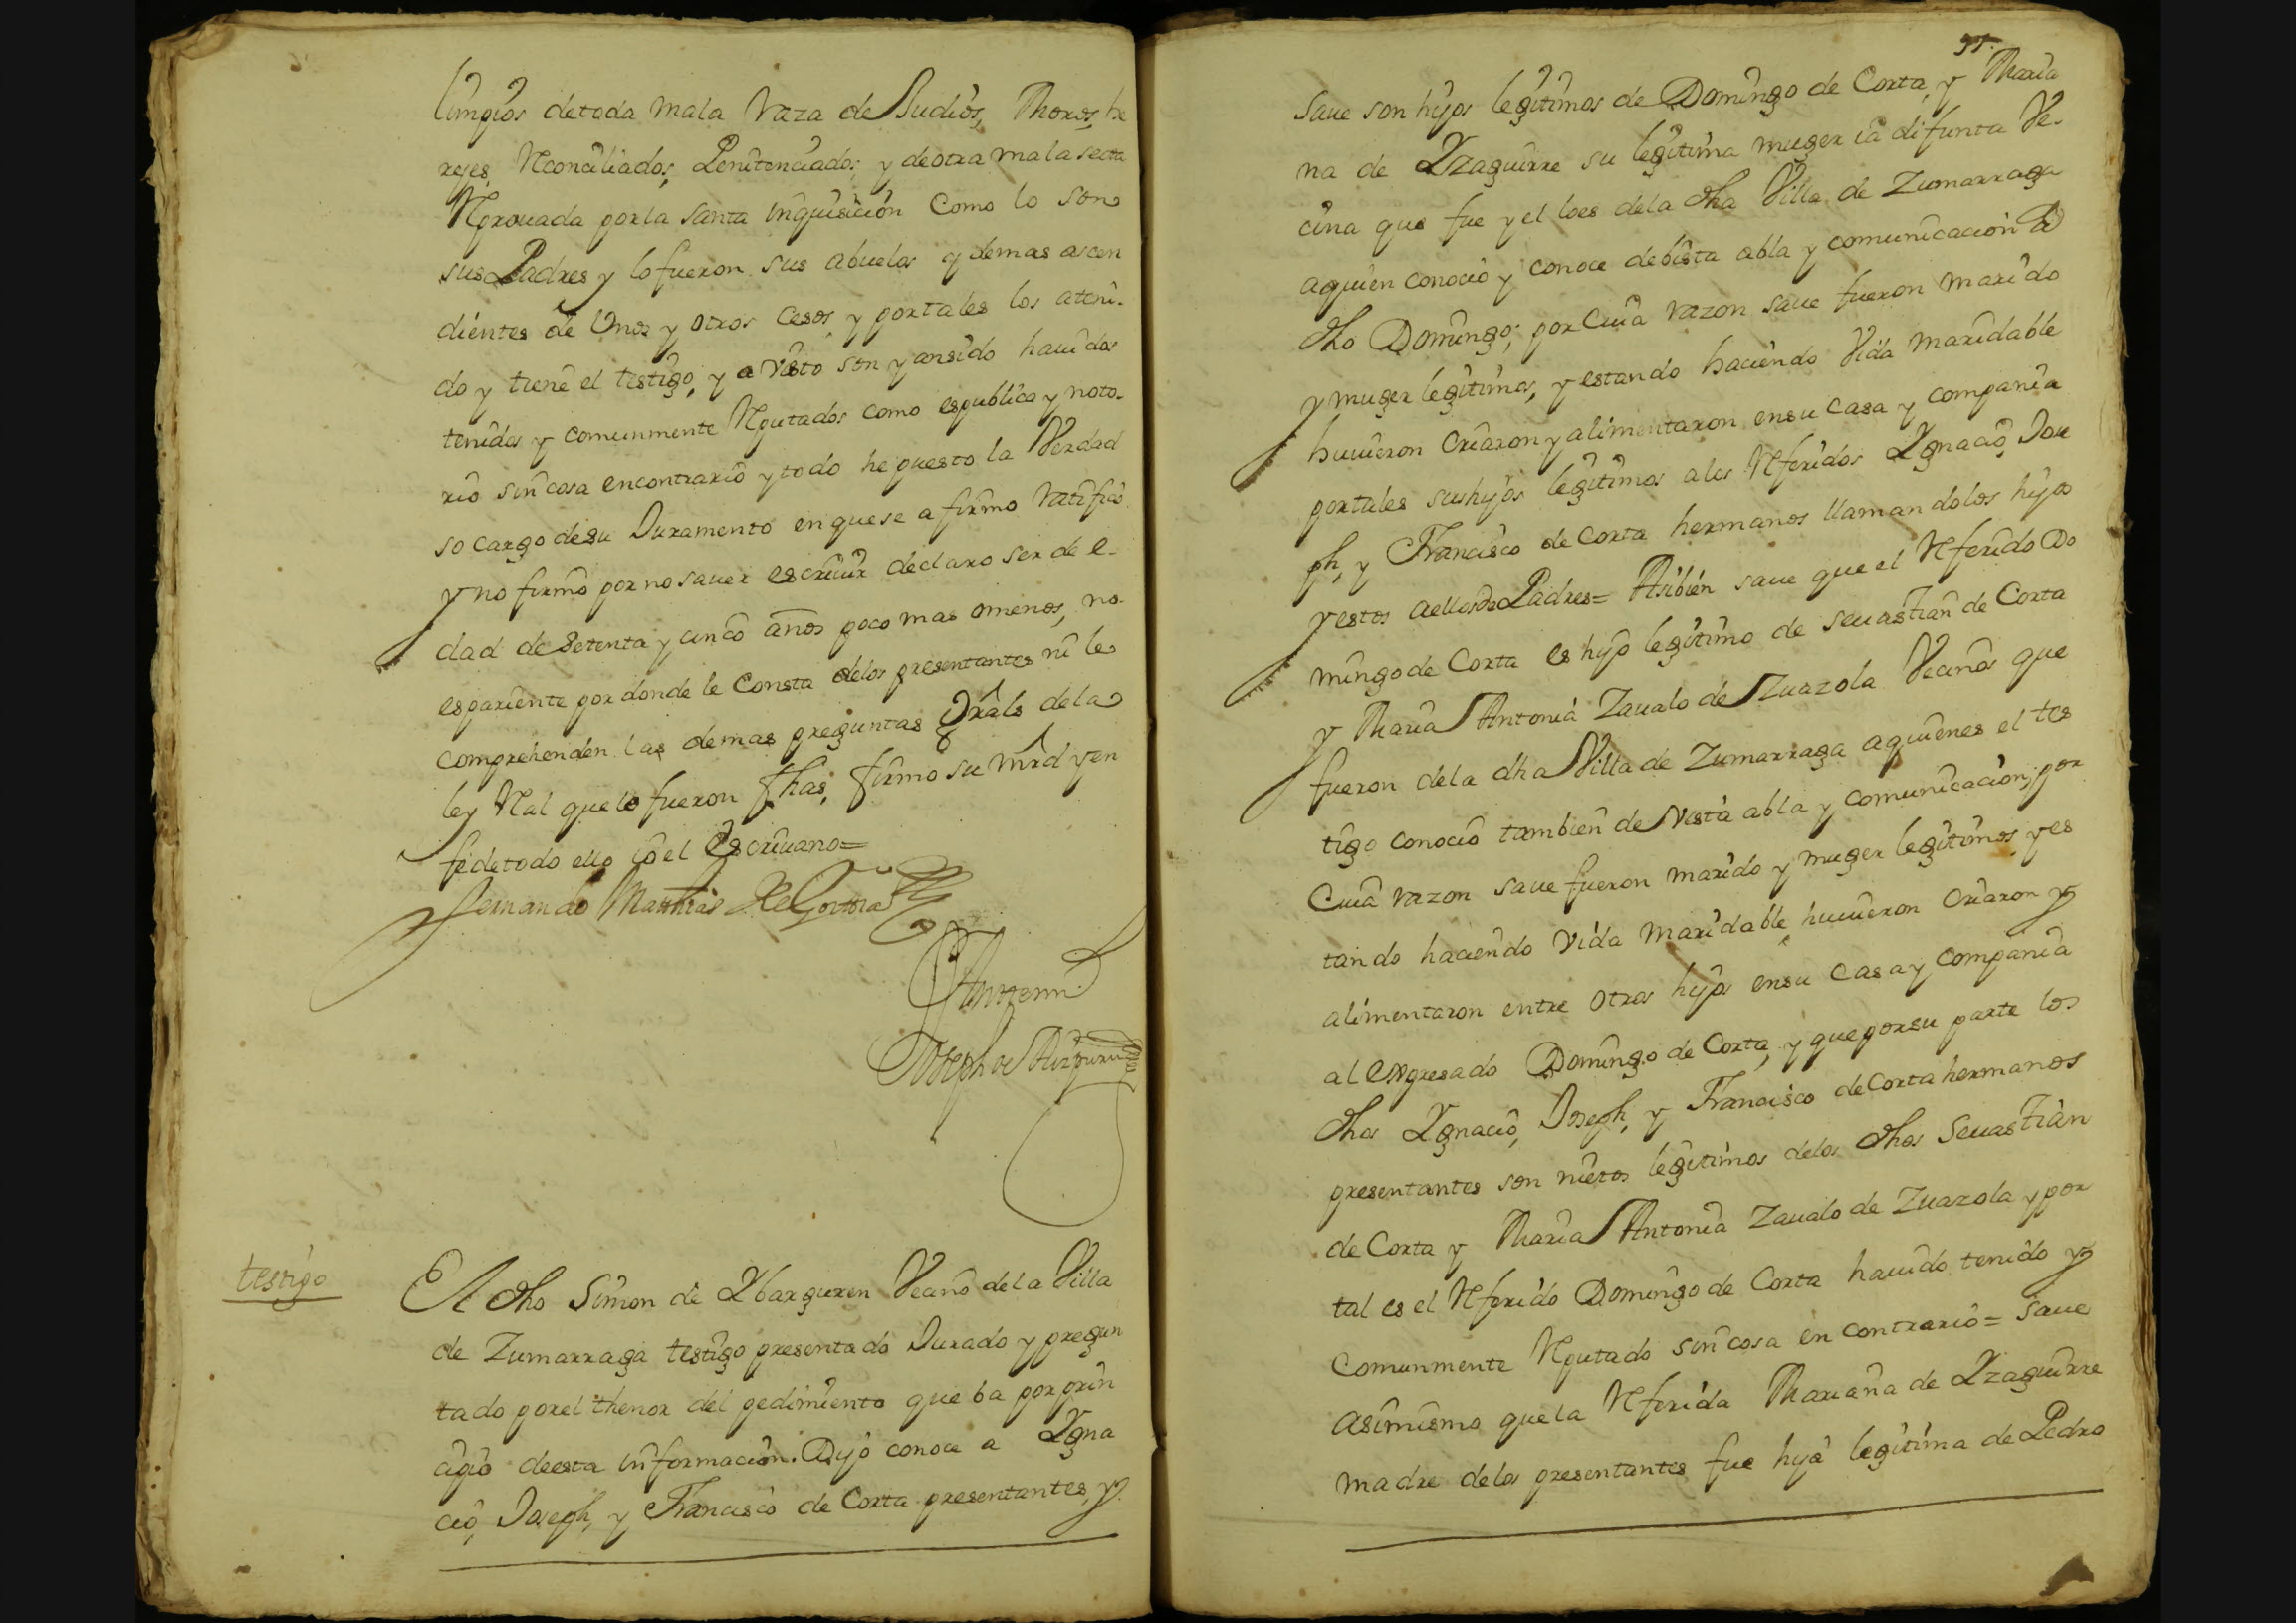 limpios de toda mala raza de Judios, Moros, he
rejes, Reconciliados, Penitenciados, y de otra mala secta
Reprouada por la Santa Inquisicion como lo son
sus Padres y lo fueron sus abuelos y demas ascen
dientes de Unos y otros cesos, y por tales los a teni-
do y tiene el testigo, y a visto son y an sido hauidos
tenidos y comunmente Reputados como es publico y noto-
rio sin cosa en contrario y todo he puesto la Verdad
so cargo de su Juramento en que se afirmo ratifico
y no firmo por no sauer escriuir declaro ser de e-
dad de setenta y cinco años poco mas o menos, no
es pariente por donde le consta de los presentantes ni le
comprehenden las demas preguntas Grals de la
ley Real que le fueron fhas, firmo su mrd y en
fe de todo ello io el Escriuano=
Fernando Matthias de Goitia
Ante mi
Joseph de
testigo
El dho Simon de Ybarguren Vecino de la Villa
de Zumarraga testigo presentado Jurado y pregun
tado por el thenor del pedimiento que ba por prin
cipio de esta informacion. Dijo conoce a Ygna
cio, Joseph, y Francisco de Corta presentantes, y
saue son hijos legitimos de Domingo de Corta, y Maria
na de Yzaguirre su legitima muger ia difunta Ve-
cina que fue y el lo es de la dha Villa de Zumarraga
a quien conocio y conoce de bista abla y comunicacion al
dho Domingo; por cuia razon saue fueron marido
y muger legitimos, y estando haciendo Vida maridable
huuieron criaron y alimentaron en su casa y compania
por tales sus hijos legitimos a los Referidos Ygnacio, Jose
ph, y Francisco de Corta hermanos llamandolos hijos
y estos a ellos de Padres= Asibien saue que el Referido Do
mingo de Corta es hijo legitimo de Seuastian de Corta
y Maria Antonia Zaualo de Zuazola Vecinos que
fueron de la dha Villa de Zumarraga a quienes el tes
tigo conocio tambien de Vista abla y comunicacion; por
cuia razon saue fueron marido y muger legitimos, y es
tando haciendo Vida maridable, huuieron criaron y
alimentaron entre otros hijos en su casa y compania
al expresado Domingo de Corta, y que por su parte los
dhos Ygnacio, Joseph, y Francisco de Corta hermanos
presentantes son nietos legitimos de los dhos Seuastian
de Corta y Maria Antonia Zaualo de Zuazola y por
tal es el Referido Domingo de Corta hauido tenido y
comunmente Reputado sin cosa en contrario= Saue
asimismo que la Referida Mariana de Yzaguirre
madre de los presentantes fue hija legitima de Pedro